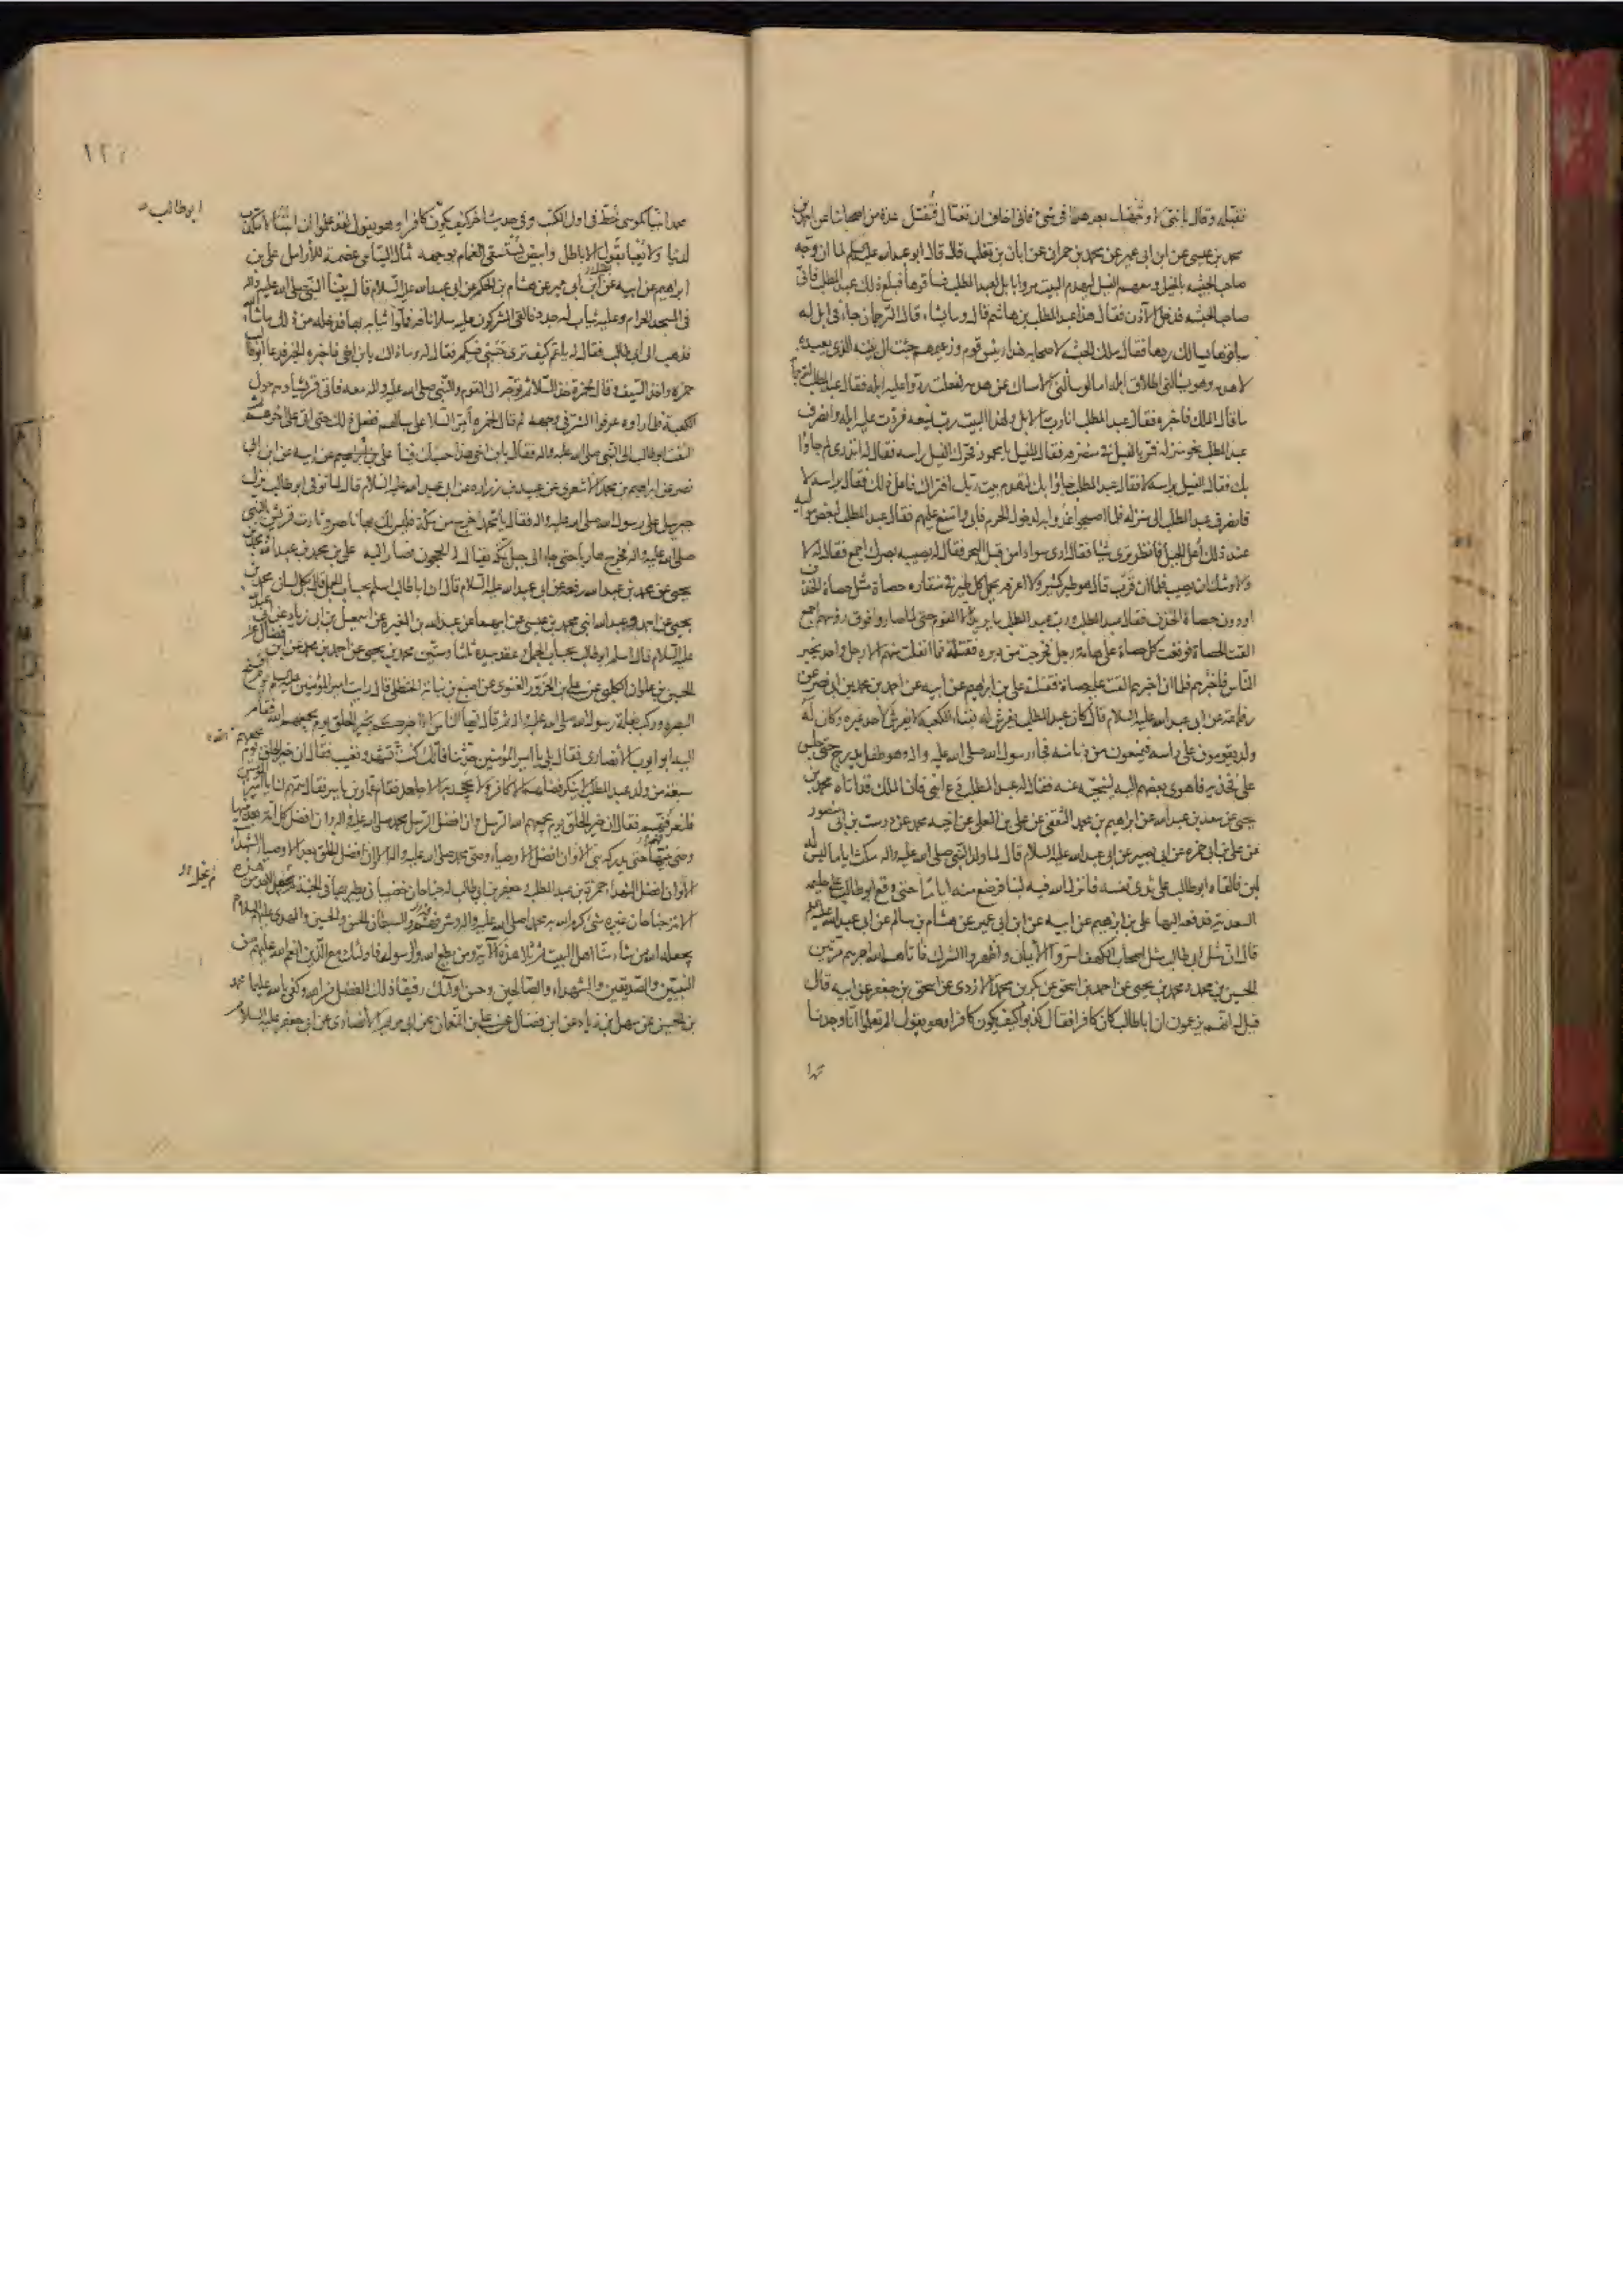 فقبله وقال يا بني لا وجهتك بعد هذا في شئ فاني اخاف ان تغتال فتقتل عدة من اصحابنا عن احمد بن
محمد بن عيسى عن ابن ابي عمير عن محمد بن حمران عن ابان بن تغلب قال قال ابو عبد الله عليه السلم لما ان وجه
صاحب الحبشه بالخيل ومعهم الفيل ليهدم البيت مروا بابل لعبد المطلب فساقوها فبلغ ذلك عبد المطلب فاتى
صاحب الحبشه فدخل الآذن فقال هذا عبد المطلب بن هاشم قال وما يشاء قال الترجمان جاء في ابل له
ساقوها يسالك ردها فقال ملك الحبشه لاصحابه هذا رئيس قوم وزعيمهم جئت الى بيته الذي يعبده
لاهدمه وهو يسالني اطلاق ابله اما لو سالني الامساك عن هدمه لفعلت ردوا عليه ابله فقال عبد المطلب لترجمانه
ما قال الملك فاخبره فقال عبد المطلب انا رب الابل ولهذا البيت رب يمنعه فردت عليه ابله وانصرف
عبد المطلب نحو منزله فمر بالفيل في منصرفه فقال للفيل يا محمود فحرك الفيل راسه فقال له اتدري لم جاؤا
بك فقال الفيل براسه لا فقال عبد المطلب جاؤا بك لتهدم بيت ربك افتراك فاعل ذلك فقال براسه لا
فانصرف عبد المطلب الى منزله فلما اصبحوا غدوا به لدخول الحرم فابى وامتنع عليهم فقال عبد المطلب لبعض مواليه
عند ذلك اعل الجبل فانظر ترى شيئا فقال ارى سوادا من قبل البحر فقال له يصيبه بصرك اجمع فقال له لا
ولاوشك ان يصيب فلما ان قرب قال هو طير كثير ولا اعرفه يحمل كل طير في منقاره حصاة مثل حصاة الخذف
او دون حصاة الخذف فقال عبد المطلب ورب عبد المطلب ما يريد الا القوم حتى لما صاروا فوق رؤسهم اجمع
القت الحصاة فوقعت كل حصاة على هامة رجل فخرجت من دبره فقتلته فما انفلت منهم الا رجل واحد يخبر
الناس فلما ان اخبرهم القت عليه حصاة فقتلته علي بن ابراهيم عن ابيه عن احمد بن محمد بن ابي نصر عن
رفاعة عن ابي عبد الله عليه السلام قال كان عبد المطلب يفرش له بفناء الكعبة لا يفرش لاحد غيره وكان له
ولد يقومون على راسه فيمنعون من دنا منه فجاء رسول الله صلى الله عليه واله وهو طفل يدرج حتى جلس
على فخذيه فاهوى بعضهم اليه لينحيه عنه فقال له عبد المطلب دع ابني فان الملك قد اتاه محمد بن
يحيى عن سعد بن عبد الله عن ابراهيم بن محمد الثقفي عن علي بن المعلى عن اخيه محمد عن درست بن ابي منصور
عن علي بن ابي حمزه عن ابي بصير عن ابي عبد الله عليه السلام قال لما ولد النبي صلى الله عليه واله مكث اياما ليس له
لبن فالقاه ابو طالب على ثدي نفسه فانزل الله فيه لبنا فرضع منه اياما حتى وقع ابو طالب على حليمه
السعديه فدفعه اليها علي بن ابراهيم عن ابيه عن ابن ابي عمير عن هشام بن سالم عن ابي عبد الله عليه السلم
قال ان مثل ابي طالب مثل اصحاب الكهف اسروا الايمان واظهروا الشرك فاتاهم الله اجرهم مرتين
الحسين بن محمد ومحمد بن يحيى عن احمد بن اسحق عن بكر بن محمد الازدي عن اسحق بن جعفر عن ابيه قال
قيل له انهم يزعمون ان ابا طالب كان كافرا فقال كذبوا كيف يكون كافرا وهو يقول الم تعلموا انا وجدنا
محمدا
ابو طالب
محمدا نبيا كموسى خط في اول الكتب وفي حديث اخر كيف يكون كافرا وهو يقول لقد علموا ان ابننا لا مكذب
لدينا ولا يعبأ بقول الاباطل وابيض يستسقى الغمام بوجهه ثمال اليتامى عصمة للأرامل علي بن
ابراهيم عن ابيه عن ابن ابي عمير عن هشام بن الحكم عن ابي عبد الله عليه السلام قال بينا النبي صلى الله عليه واله
في المسجد الحرام وعليه ثياب له جدد فالقى المشركون عليه سلا ناقة فملؤا ثيابه بها فدخله من ذلك ما شاء الله
فذهب الى ابي طالب فقال له يا عم كيف ترى حسبي فيكم فقال له وما ذاك يا بن اخي فاخبره الخبر فدعا ابو طالب
حمزه واخذ السيف وقال لحمزة خذ السلا ثم توجه الى القوم والنبي صلى الله عليه واله معه فاتى قريشا وهم حول
الكعبة فلما راوه عرفوا الشر في وجهه ثم قال لحمزه أمر السلا على سبالهم ففعل ذلك حتى اتى على اخرهم ثم
التفت ابو طالب الى النبي صلى الله عليه واله فقال يا بن اخي هذا حسبك فينا علي بن ابراهيم عن ابيه عن ابن ابي
نصر عن ابراهيم بن محمد الاشعري عن عبيد بن زراره عن ابي عبد الله عليه السلام قال لما توفي ابو طالب نزل
جبرئيل على رسول الله صلى الله عليه واله فقال يا محمد اخرج من مكة فليس لك بها ناصر وثارت قريش بالنبي
صلى الله عليه واله فخرج هاربا حتى جاء الى جبل بمكة يقال له الحجون فصار اليه علي بن محمد بن عبد الله ومحمد بن
يحيى عن محمد بن عبد الله رفعه عن ابي عبد الله عليه السلام قال ان ابا طالب اسلم بحساب الجمل قال بكل لسان محمد بن
يحيى عن احمد وعبد الله ابني محمد بن عيسى عن ابيهما عن عبد الله بن المغيره عن اسمعيل بن ابي زياد عن ابي عبد الله
عليه السلام قال اسلم ابو طالب بحساب الجمل وعقد بيده ثلثا وستين محمد بن يحيى عن احمد بن محمد عن ابن فضال عن
الحسين بن علوان الكلبي عن علي بن الحزور الغنوي عن اصبغ بن نباتة الحنظلي قال رايت امير المؤمنين عليه السلم يوم افتتح
البصره وركب بغلة رسول الله صلى الله عليه واله ثم قال ايها الناس الا اخبركم بخير الخلق يوم يجمعهم الله فقام
اليه ابو ايوب الأنصاري فقال بلى يا امير المؤمنين حدثنا فانك كنت تشهد ونغيب فقال ان خير الخلق يوم
يجمعهم الله
سبعة من ولد عبد المطلب لا ينكر فضلهم الا كافر ولا يجحد به الا جاحد فقام عمار بن ياسر فقال سمهم لنا يا امير المؤمنين
فلنعرفهم فقال ان خير الخلق يوم يجمعهم الله الرسل وان افضل الرسل محمد صلى الله عليه واله وان افضل كل امة بعد نبيها
وصي نبيها حتى يدركه نبي الا وان افضل الاوصياء وصي محمد صلى الله عليه واله الا وان افضل الخلق بعد الاوصياء الشهداء
الا وان افضل الشهداء حمزة بن عبد المطلب وجعفر بن ابي طالب له جناحان خضيبان يطير بهما في الجنة لم ينحل احد من هذه
الامة جناحان غيره شئ كرم الله به محمدا صلى الله عليه واله وشرفه والسبطان الحسن والحسين والمهدي عليهم السلام
يجعله الله من شاء منا اهل البيت ثم تلا هذه الآية ومن يطع الله والرسول فاولئك مع الذين انعم الله عليهم من
النبيين والصديقين والشهداء والصالحين وحسن اولئك رفيقا ذلك الفضل من الله وكفى بالله عليما محمد
بن الحسين عن سهل بن زياد عن ابن فضال عن علي بن النعمان عن ابي مريم الأنصاري عن ابي جعفر عليه السلام